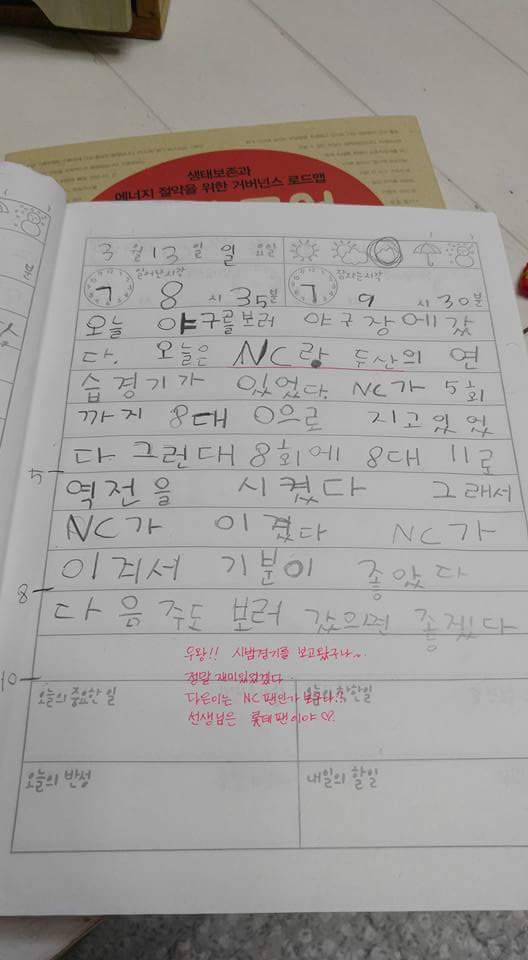 생태보존과
에너지 절약을 위한 거버넌스 로드맵
3 월 13 일 일 요일
일어난시각 잠자는시각
7 8 시 35분 7 9 시 30분
오늘 야구를보러 야구장에갔
다. 오늘은 NC랑 두산의 연
습경기가 있었다. NC가 5회
까지 8대 0으로 지고있었
다 그런대 8회에 8대 11로
역전을 시켰다 그래서
NC가 이겼다 NC가
이겨서 기분이 좋았다
다음주도 보러 갔으면 좋겠다
4
8
10
우왕!! 시범경기를 보고왔구나~
정말 재미있었겠다
다은이는 NC팬인가 보구나?
선생님은 롯데팬이야♡
오늘의 중요한 일 오늘의 착한일
오늘의 반성 내일의 할일